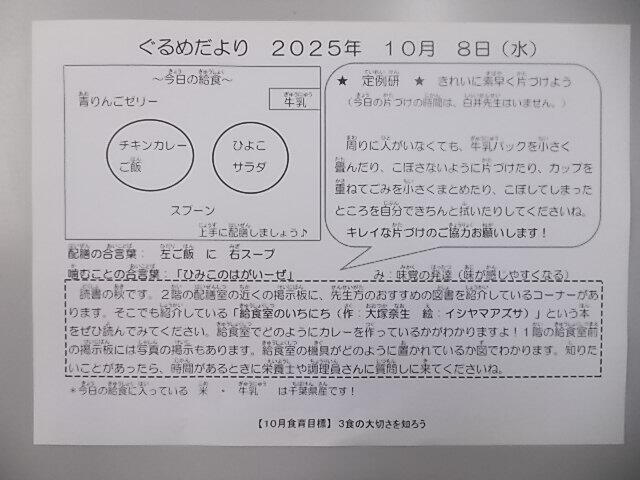 ぐるめだより　２０２５年　１０月　８日（水）
～今日の給食～
青りんごゼリー
牛乳
チキンカレー
ご飯
ひよこ
サラダ
スプーン
上手に配膳しましょう♪
★　定例研　★　きれいに素早く片づけよう
（今日の片づけの時間は、白井先生はいません。）
周りに人がいなくても、牛乳パックを小さく
畳んだり、こぼさないように片づけたり、カップを
重ねてごみを小さくまとめたり、こぼしてしまった
ところを自分できちんと拭いたりしてくださいね。
キレイな片づけのご協力お願いします！
配膳の合言葉：　左ご飯　に　右スープ
噛むことの合言葉：「ひみこのはがいーぜ」　み：味覚の発達（味が感じやすくなる）
読書の秋です。２階の配膳室の近くの掲示板に、先生方のおすすめの図書を紹介しているコーナーがあ
ります。そこでも紹介している「給食室のいちにち（作：大塚奈生　絵：イシヤマアズサ）」という本
をぜひ読んでみてください。給食室でどのようにカレーを作っているかがわかりますよ！１階の給食室前
の掲示板には写真の掲示もあります。給食室の機具がどのように置かれているか図でわかります。知りた
いことがあったら、時間があるときに栄養士や調理員さんに質問しに来てくださいね。
＊今日の給食に入っている　米　・　牛乳　は千葉県産です！
【１０月食育目標】３食の大切さを知ろう